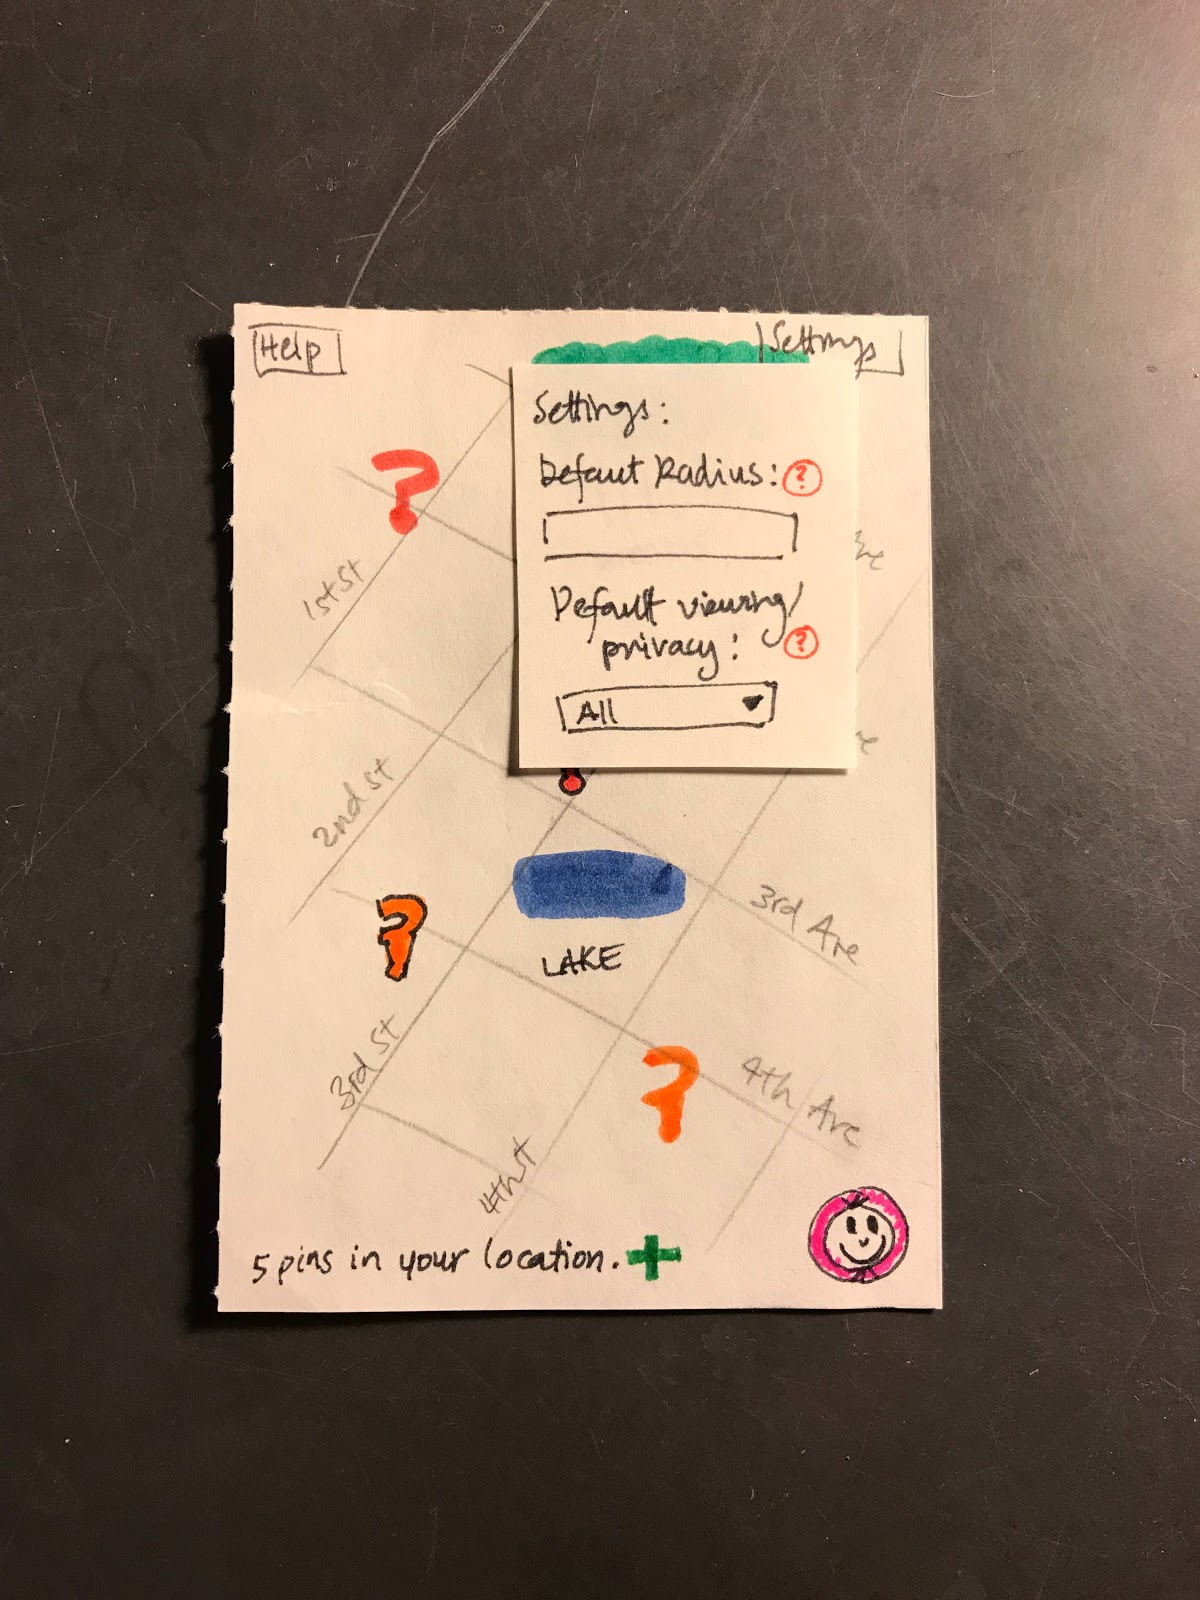 Help
Settings
Settings:
Defaut Radius: ?
Default viewing/
privacy: ?
All
?
1st St
2nd St
?
LAKE
3rd Ave
3rd St
?
4th Ave
4th st
5 pins in your location. +